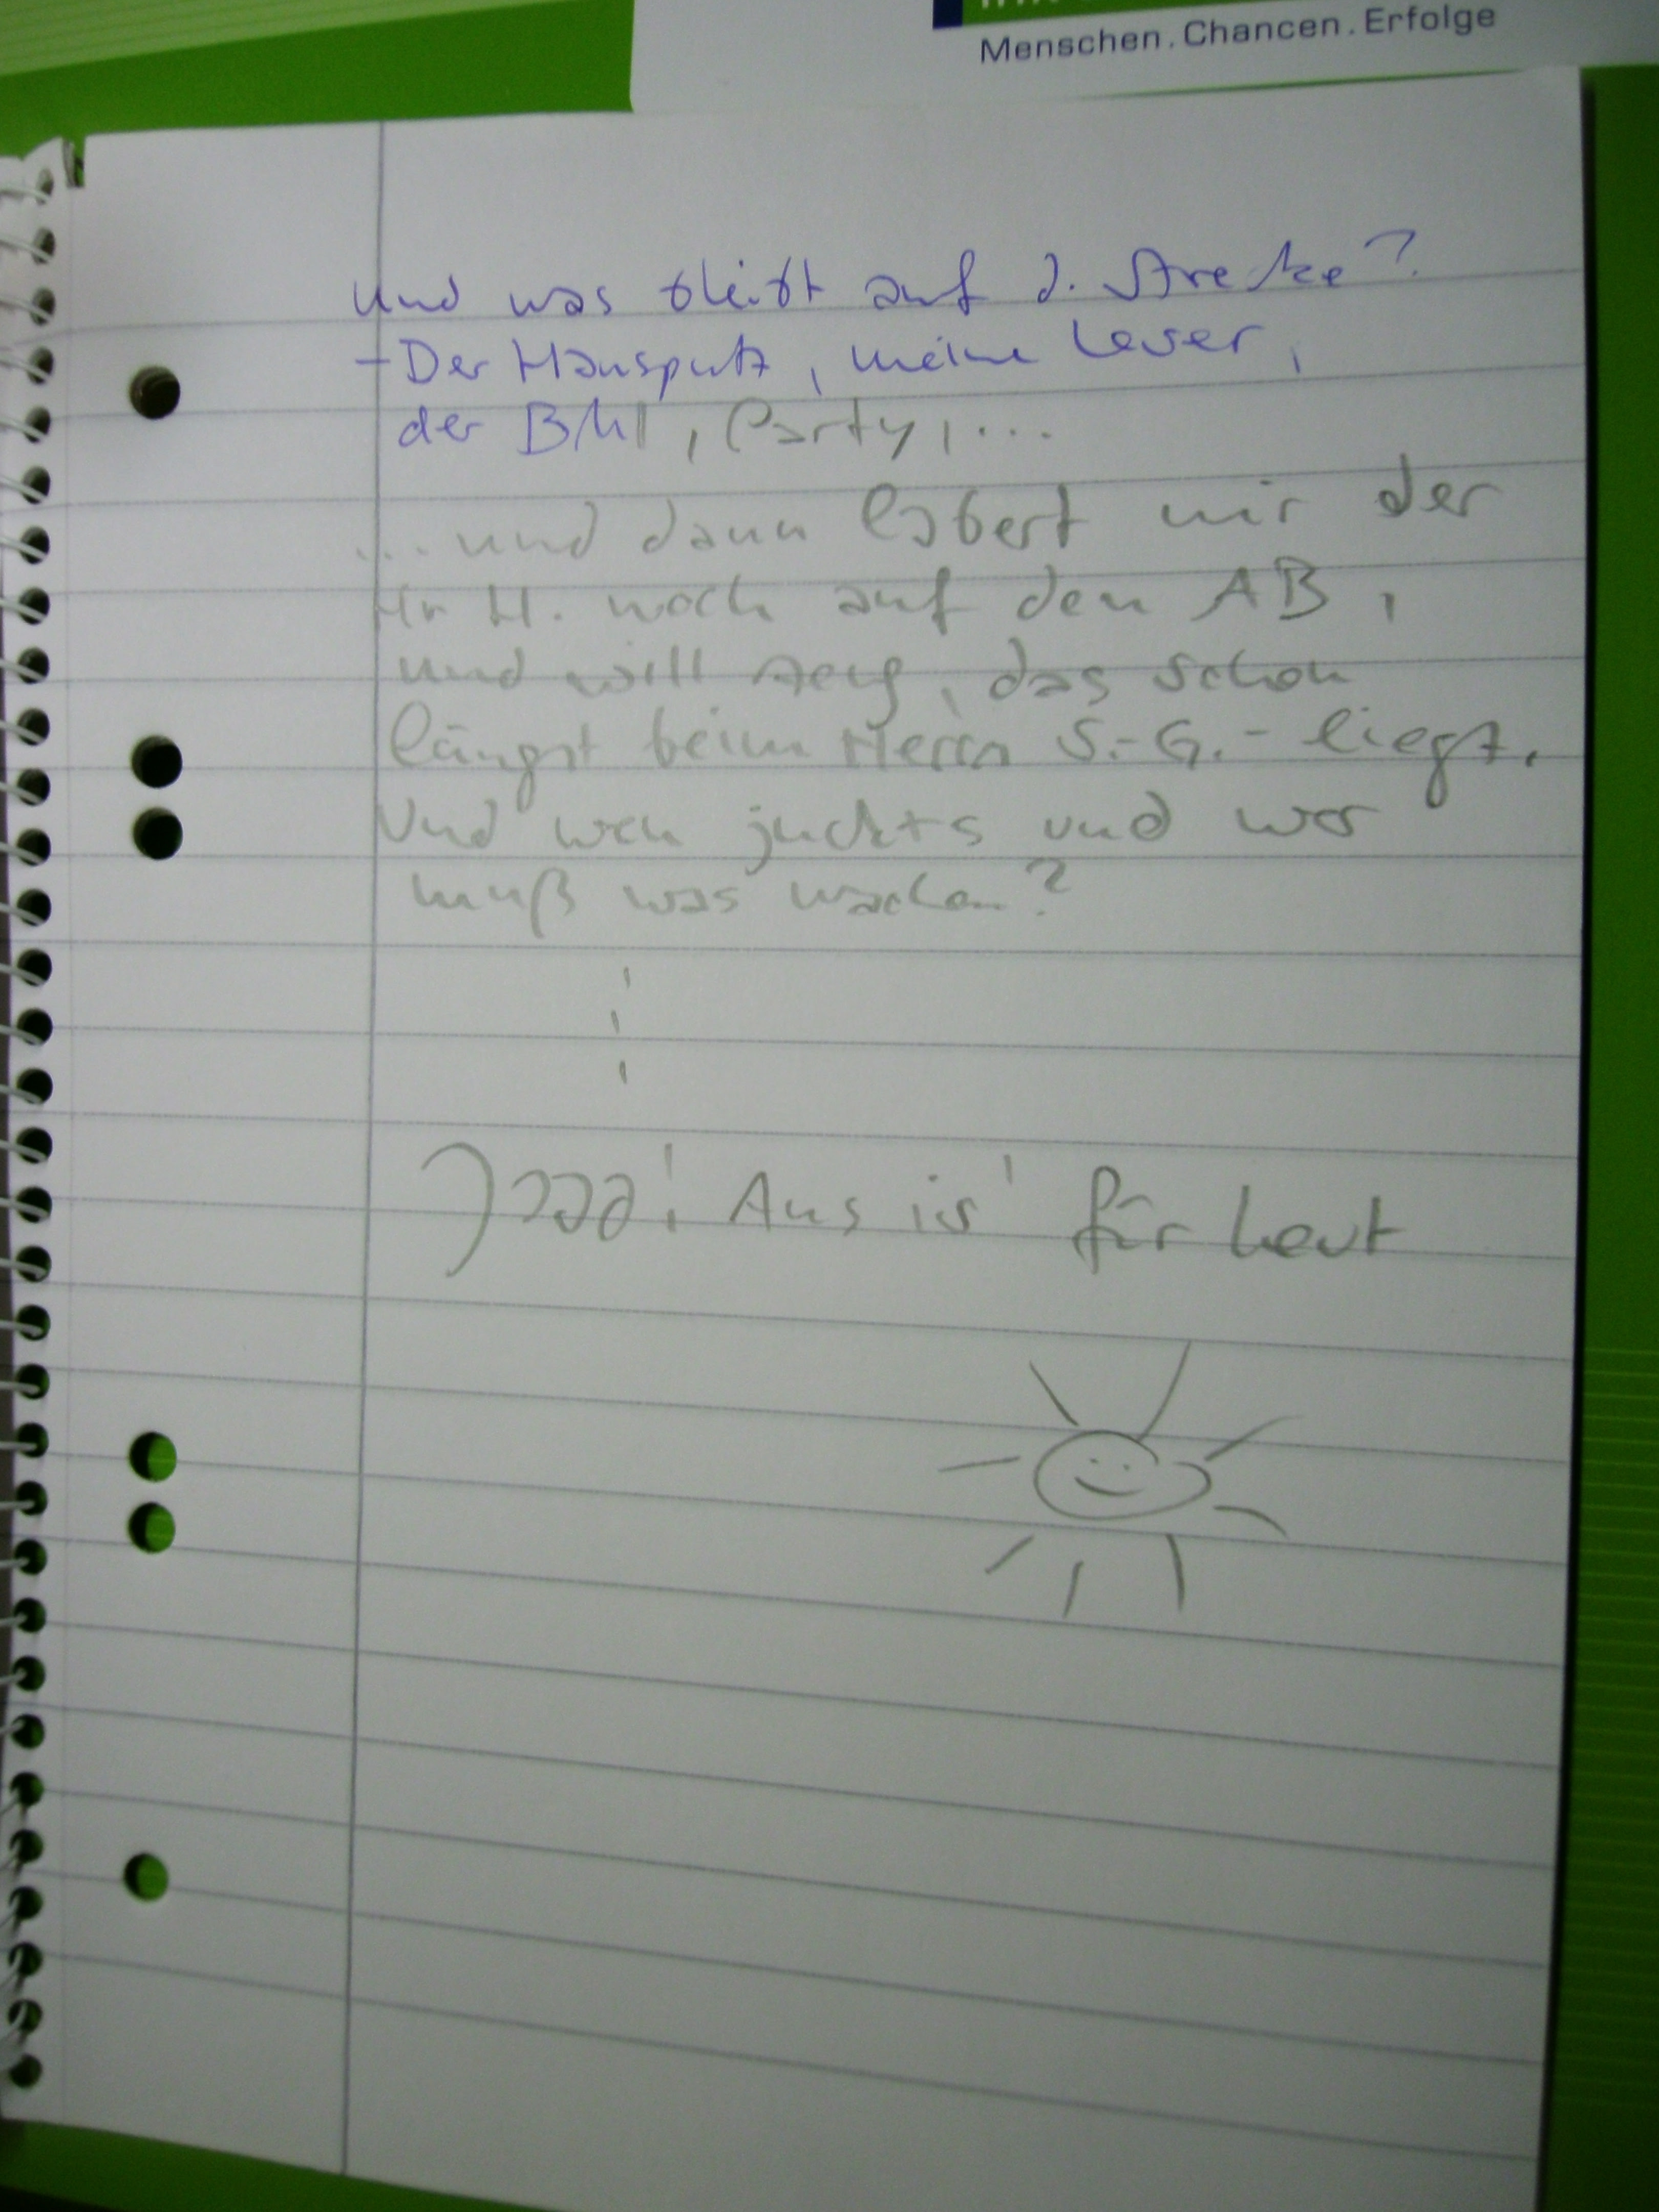 Menschen.Chancen.Erfolge
Und was bleibt auf d. Strecke?
- Der Hausputz, meine Leser,
der BM, Party, ...
... und dann labert mir der
Hr H. noch auf den AB,
und will Zeug, das schon
längst beim Herrn S.-G.- liegt.
Und wen juckts und wer
muß was machen?
Jaaa! Aus is' für heut